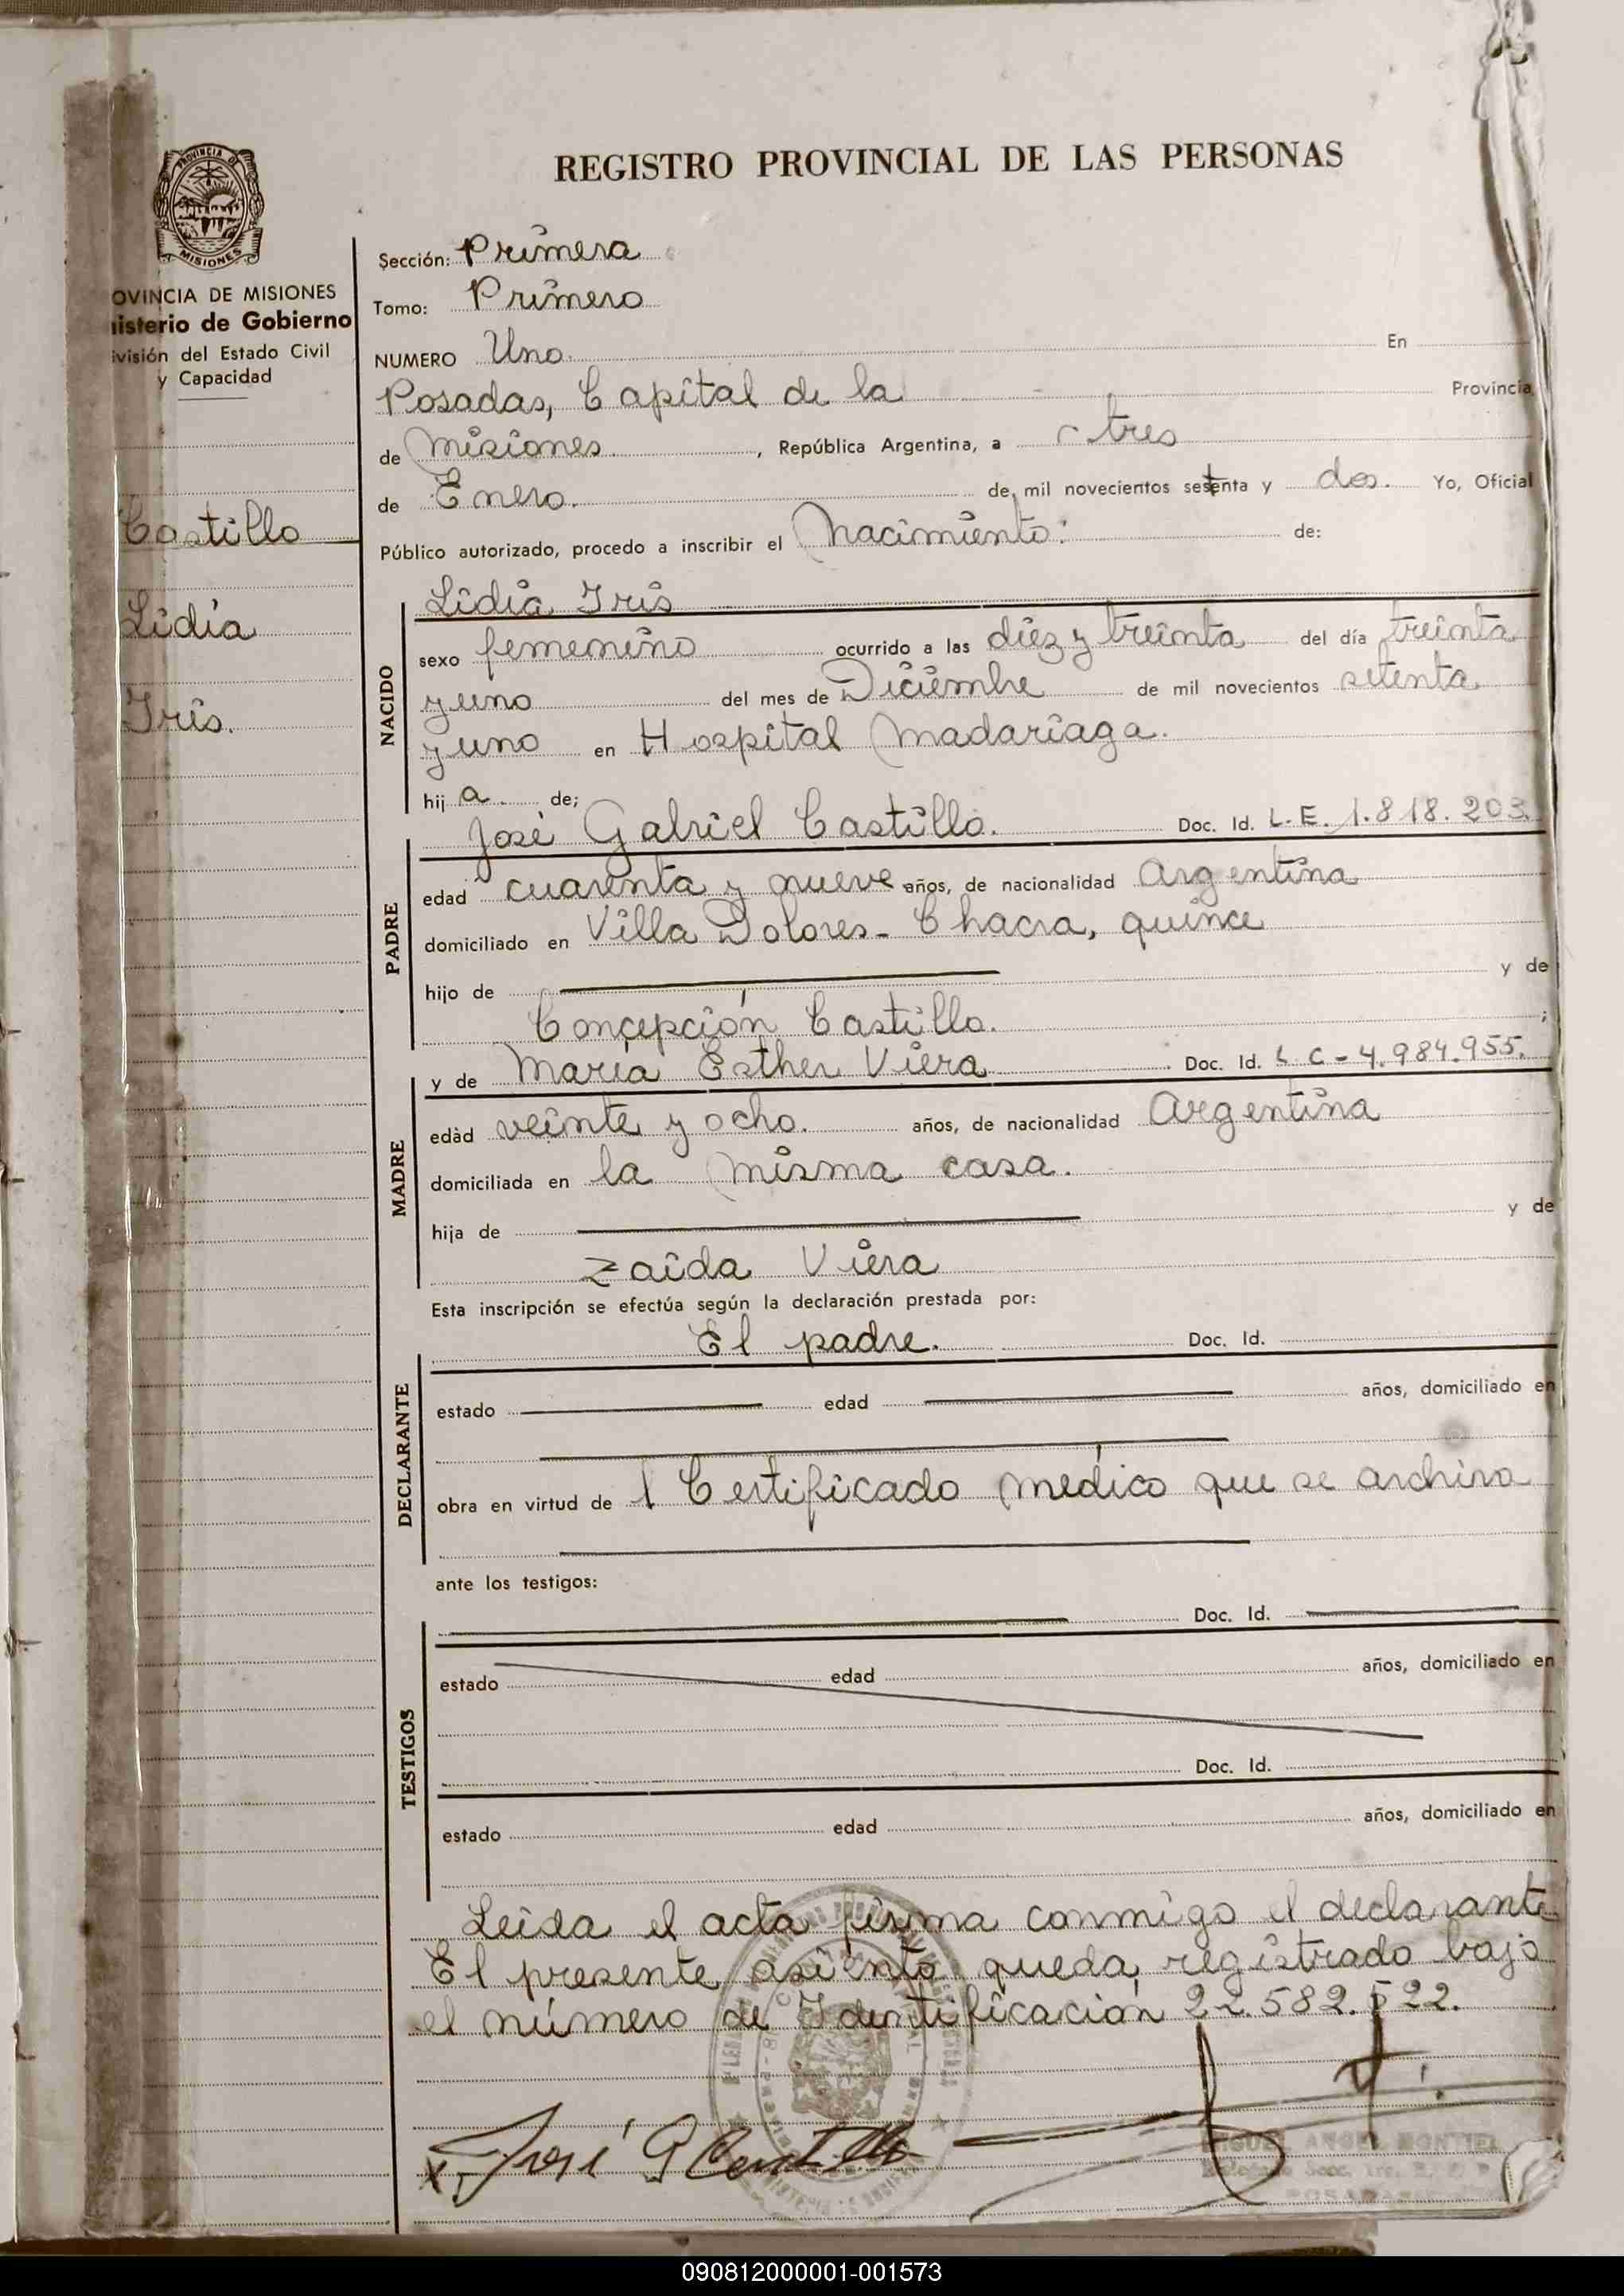 REGISTRO PROVINCIAL DE LAS PERSONAS
PROVINCIA DE
MISIONES
OVINCIA DE MISIONES
nisterio de Gobierno
ivisión del Estado Civil
y Capacidad
Castillo
Lidia
Iris.
Sección: Primera
Tomo: Primero
NUMERO Uno. En
Posadas, Capital de la Provincia
de Misiones. , República Argentina, a tres
de Enero. de mil novecientos setenta y dos. Yo, Oficial
Público autorizado, procedo a inscribir el Nacimiento: de:
Lidia Iris
NACIDO
sexo femenino ocurrido a las diez y treinta del día treinta
y uno del mes de Diciembre de mil novecientos setenta
y uno en Hospital Madariaga.
hij a de;
José Gabriel Castillo. Doc. Id. L.E. 1.818.203.
PADRE
edad cuarenta y nueve años, de nacionalidad Argentina
domiciliado en Villa Dolores- Chacra, quince
hijo de y de
Concepción Castillo. ;
y de María Esther Viera Doc. Id. L C - 4.984.955.
MADRE
edàd veinte y ocho. años, de nacionalidad Argentina
domiciliada en la misma casa.
hija de y de
Zaida Viera
Esta inscripción se efectúa según la declaración prestada por:
El padre. Doc. Id.
DECLARANTE
estado edad años, domiciliado en
obra en virtud de 1 Certificado médico que se archiva
ante los testigos:
Doc. Id.
TESTIGOS
estado edad años, domiciliado en
Doc. Id.
estado edad años, domiciliado en
Leida el acta firma conmigo el declarante
El presente asiento queda registrado bajo
el número de Identificación 22.582.522.
José G Castillo
MIGUEL ANGEL MONTIEL
POSADAS
090812000001-001573